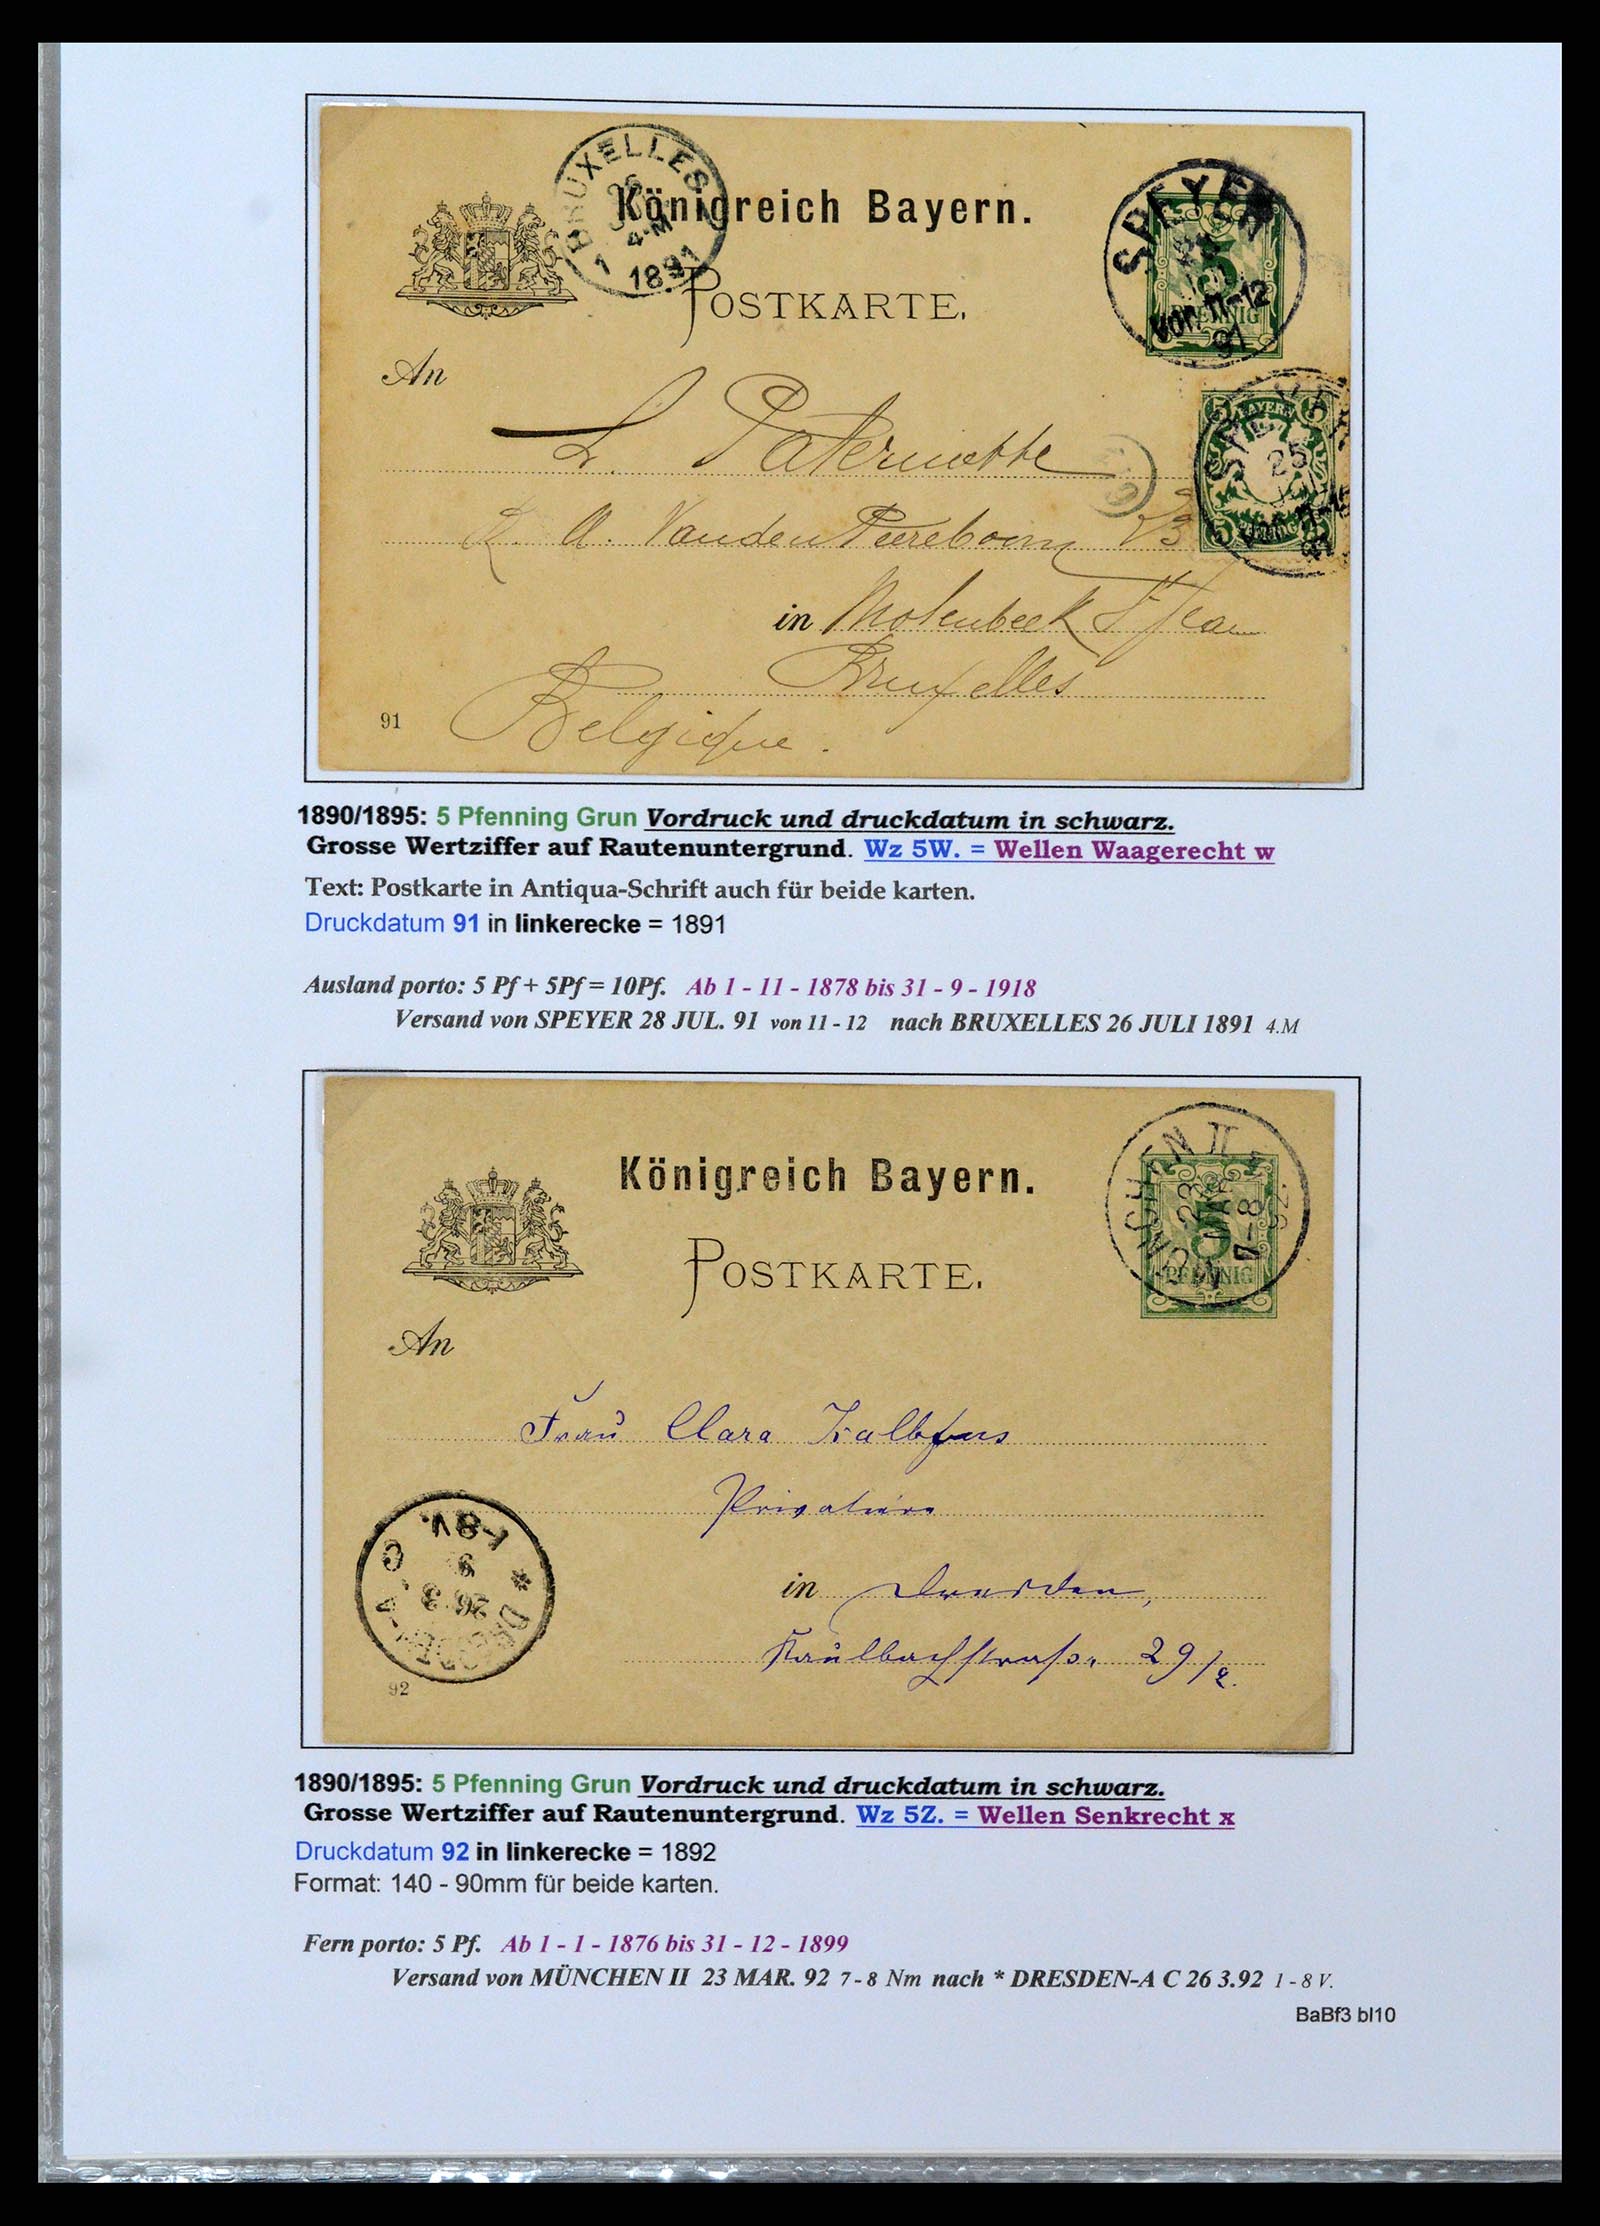 BRUXELLES
26
4-M
1 1891
Königreich Bayern.
SPEYER
5
PFENNIG
Vor. 11-12
91
POSTKARTE.
An
5 BAYERN 5
25
Vor. 11-12
5 5
91
L. Paternotte
R. A. Vanden Peereboom 73
in Molenbeek St Jean
Bruxelles
Belgique.
91
1890/1895: 5 Pfenning Grun Vordruck und druckdatum in schwarz.
Grosse Wertziffer auf Rautenuntergrund. Wz 5W. = Wellen Waagerecht w
Text: Postkarte in Antiqua-Schrift auch für beide karten.
Druckdatum 91 in linkerecke = 1891
Ausland porto: 5 Pf + 5Pf = 10Pf. Ab 1 - 11 - 1878 bis 31 - 9 - 1918
Versand von SPEYER 28 JUL. 91 von 11 - 12 nach BRUXELLES 26 JULI 1891 4.M
Königreich Bayern.
MÜNCHEN II
23
MAR.
7-8
92
5
PFENNIG
POSTKARTE.
An
Frau Clara Kalbfus
Privatière
in Dresden,
Kaulbachstraße 29/2.
* DRESDEN-A. C
26 3
92
1-8V.
92
1890/1895: 5 Pfenning Grun Vordruck und druckdatum in schwarz.
Grosse Wertziffer auf Rautenuntergrund. Wz 5Z. = Wellen Senkrecht x
Druckdatum 92 in linkerecke = 1892
Format: 140 - 90mm für beide karten.
Fern porto: 5 Pf. Ab 1 - 1 - 1876 bis 31 - 12 - 1899
Versand von MÜNCHEN II 23 MAR. 92 7 - 8 Nm nach * DRESDEN-A C 26 3.92 1 - 8 V.
BaBf3 bl10